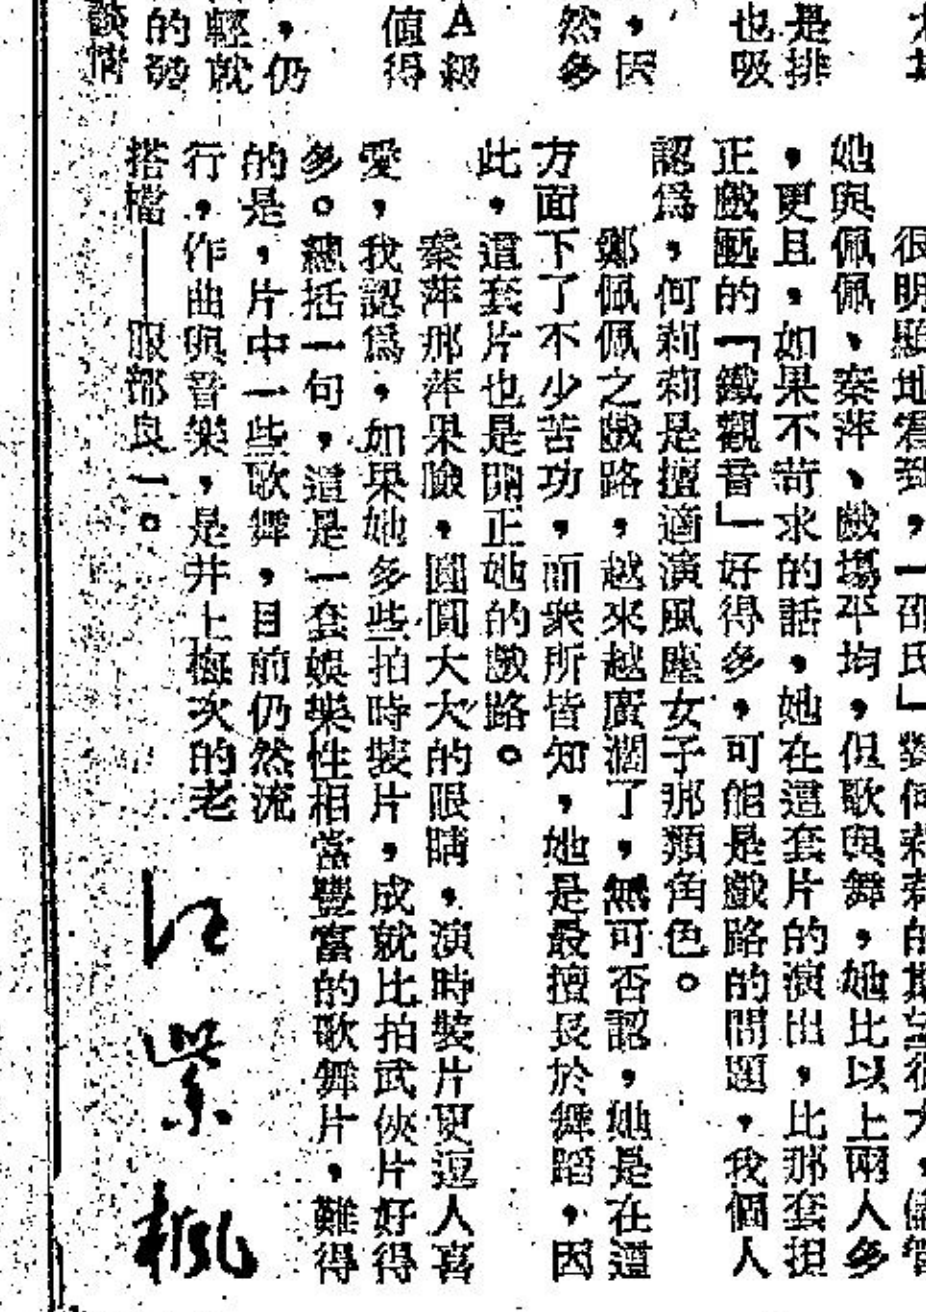 才
是排
也吸
，因
然多
A級
值得
，仍
輕就
的發
談情
很明顯地看到，「邵氏」對何莉莉的期望很大，儘管
她與佩佩、秦萍、戲場平均，但歌與舞，她比以上兩人多
，更且，如果不苛求的話，她在這套片的演出，比那套担
正戲匭的「鐵觀音」好得多，可能是戲路的問題，我個人
認爲，何莉莉是擅適演風塵女子那類角色。
鄭佩佩之戲路，越來越廣濶了，無可否認，她是在這
方面下了不少苦功，而衆所皆知，她是最擅長於舞蹈，因
此，這套片也是開正她的戲路。
秦萍那萍果臉，圓圓大大的眼睛，演時裝片更逗人喜
愛，我認爲，如果她多些拍時裝片，成就比拍武俠片好得
多。總括一句，這是一套娛樂性相當豐富的歌舞片，難得
的是，片中一些歌舞，目前仍然流
行，作曲與音樂，是井上梅次的老
搭檔——服部良一。
江紫楓